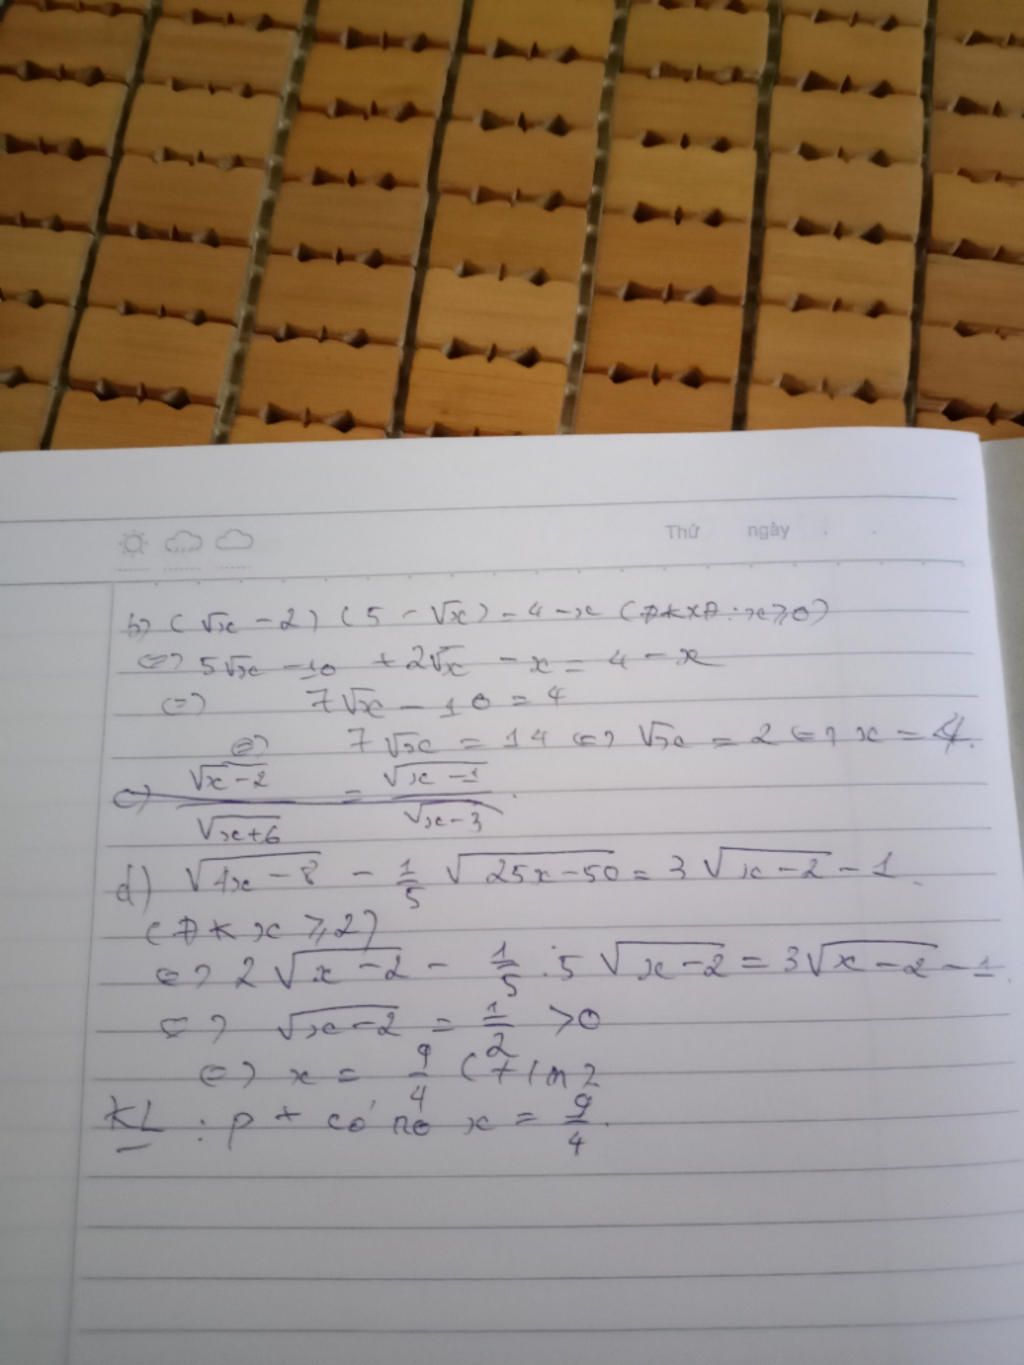 Thứ ngày
b) (√x - 2) (5 - √x) = 4 - x (ĐKXĐ: x ≥ 0)
<=> 5√x - 10 + 2√x - x = 4 - x
<=> 7√x - 10 = 4
<=> 7√x = 14 <=> √x = 2 <=> x = 4.
c) √x-2 / √x+6 = √x-1 / √x-3 .
d) √4x-8 - 1/5 √25x-50 = 3√x-2 - 1.
(ĐK x ≥ 2)
<=> 2√x-2 - 1/5 . 5√x-2 = 3√x-2 - 1.
<=> √x-2 = 1/2 > 0
<=> x = 9/4 (t/m)
KL : pt có no x = 9/4.